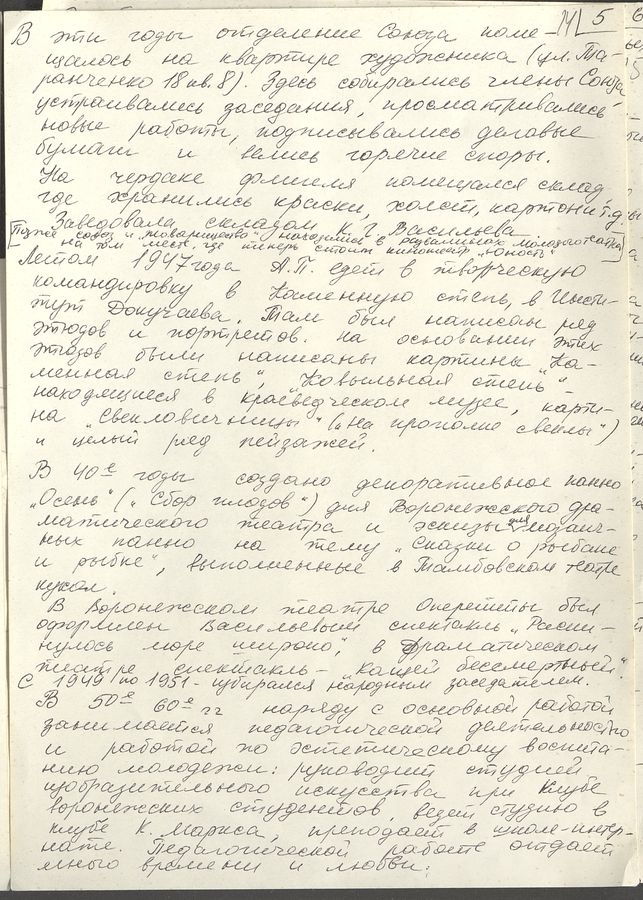 14 5
В эти годы отделение Союза поме-
щалось на квартире художника (ул. Та-
ранченко 18 кв. 8). Здесь собирались члены Союза
устраивались заседания, просматривались
новые работы, подписывались деловые
бумаги и велись горячие споры.
На чердаке флигеля помещался склад
где хранились краски, холст, картон и т.д.
Заведовала складом К. Г. Васильева
[Позже союз и „товарищество" находились в развалинах молодого театра
на том месте, где теперь стоит кинотеатр „Юность"]
Летом 1947 года А.П. едет в творческую
командировку в Каменную степь, в Инсти-
тут Докучаева. Там был написан ряд
этюдов и портретов. На основании этих
этюдов были написаны картины „Ка-
менная степь", „Ковыльная степь" -
находящиеся в краеведческом музее, карти-
на „Свекловичницы" („На прополке свеклы")
и целый ряд пейзажей.
В 40е годы создано декоративное панно
„Осень" („Сбор плодов") для Воронежского дра-
матического театра и эскизы для мозаич-
ных панно на тему „Сказки о рыбаке
и рыбке", выполненные в Тамбовском театре
кукол.
В Воронежском театре Оперетты был
оформлен Васильевым спектакль „Раски-
нулось море широко", в драматическом
театре спектакль - „Кащей бессмертный".
С 1949 по 1951 - избирался народным заседателем.
В 50е 60е гг наряду с основной работой
занимается педагогической деятельностью
и работой по эстетическому воспита-
нию молодежи: руководит студией
изобразительного искусства при Клубе
воронежских студентов, ведет студию в
клубе К. Маркса, преподает в школе-интер-
нате. Педагогической работе отдает
много времени и любви.